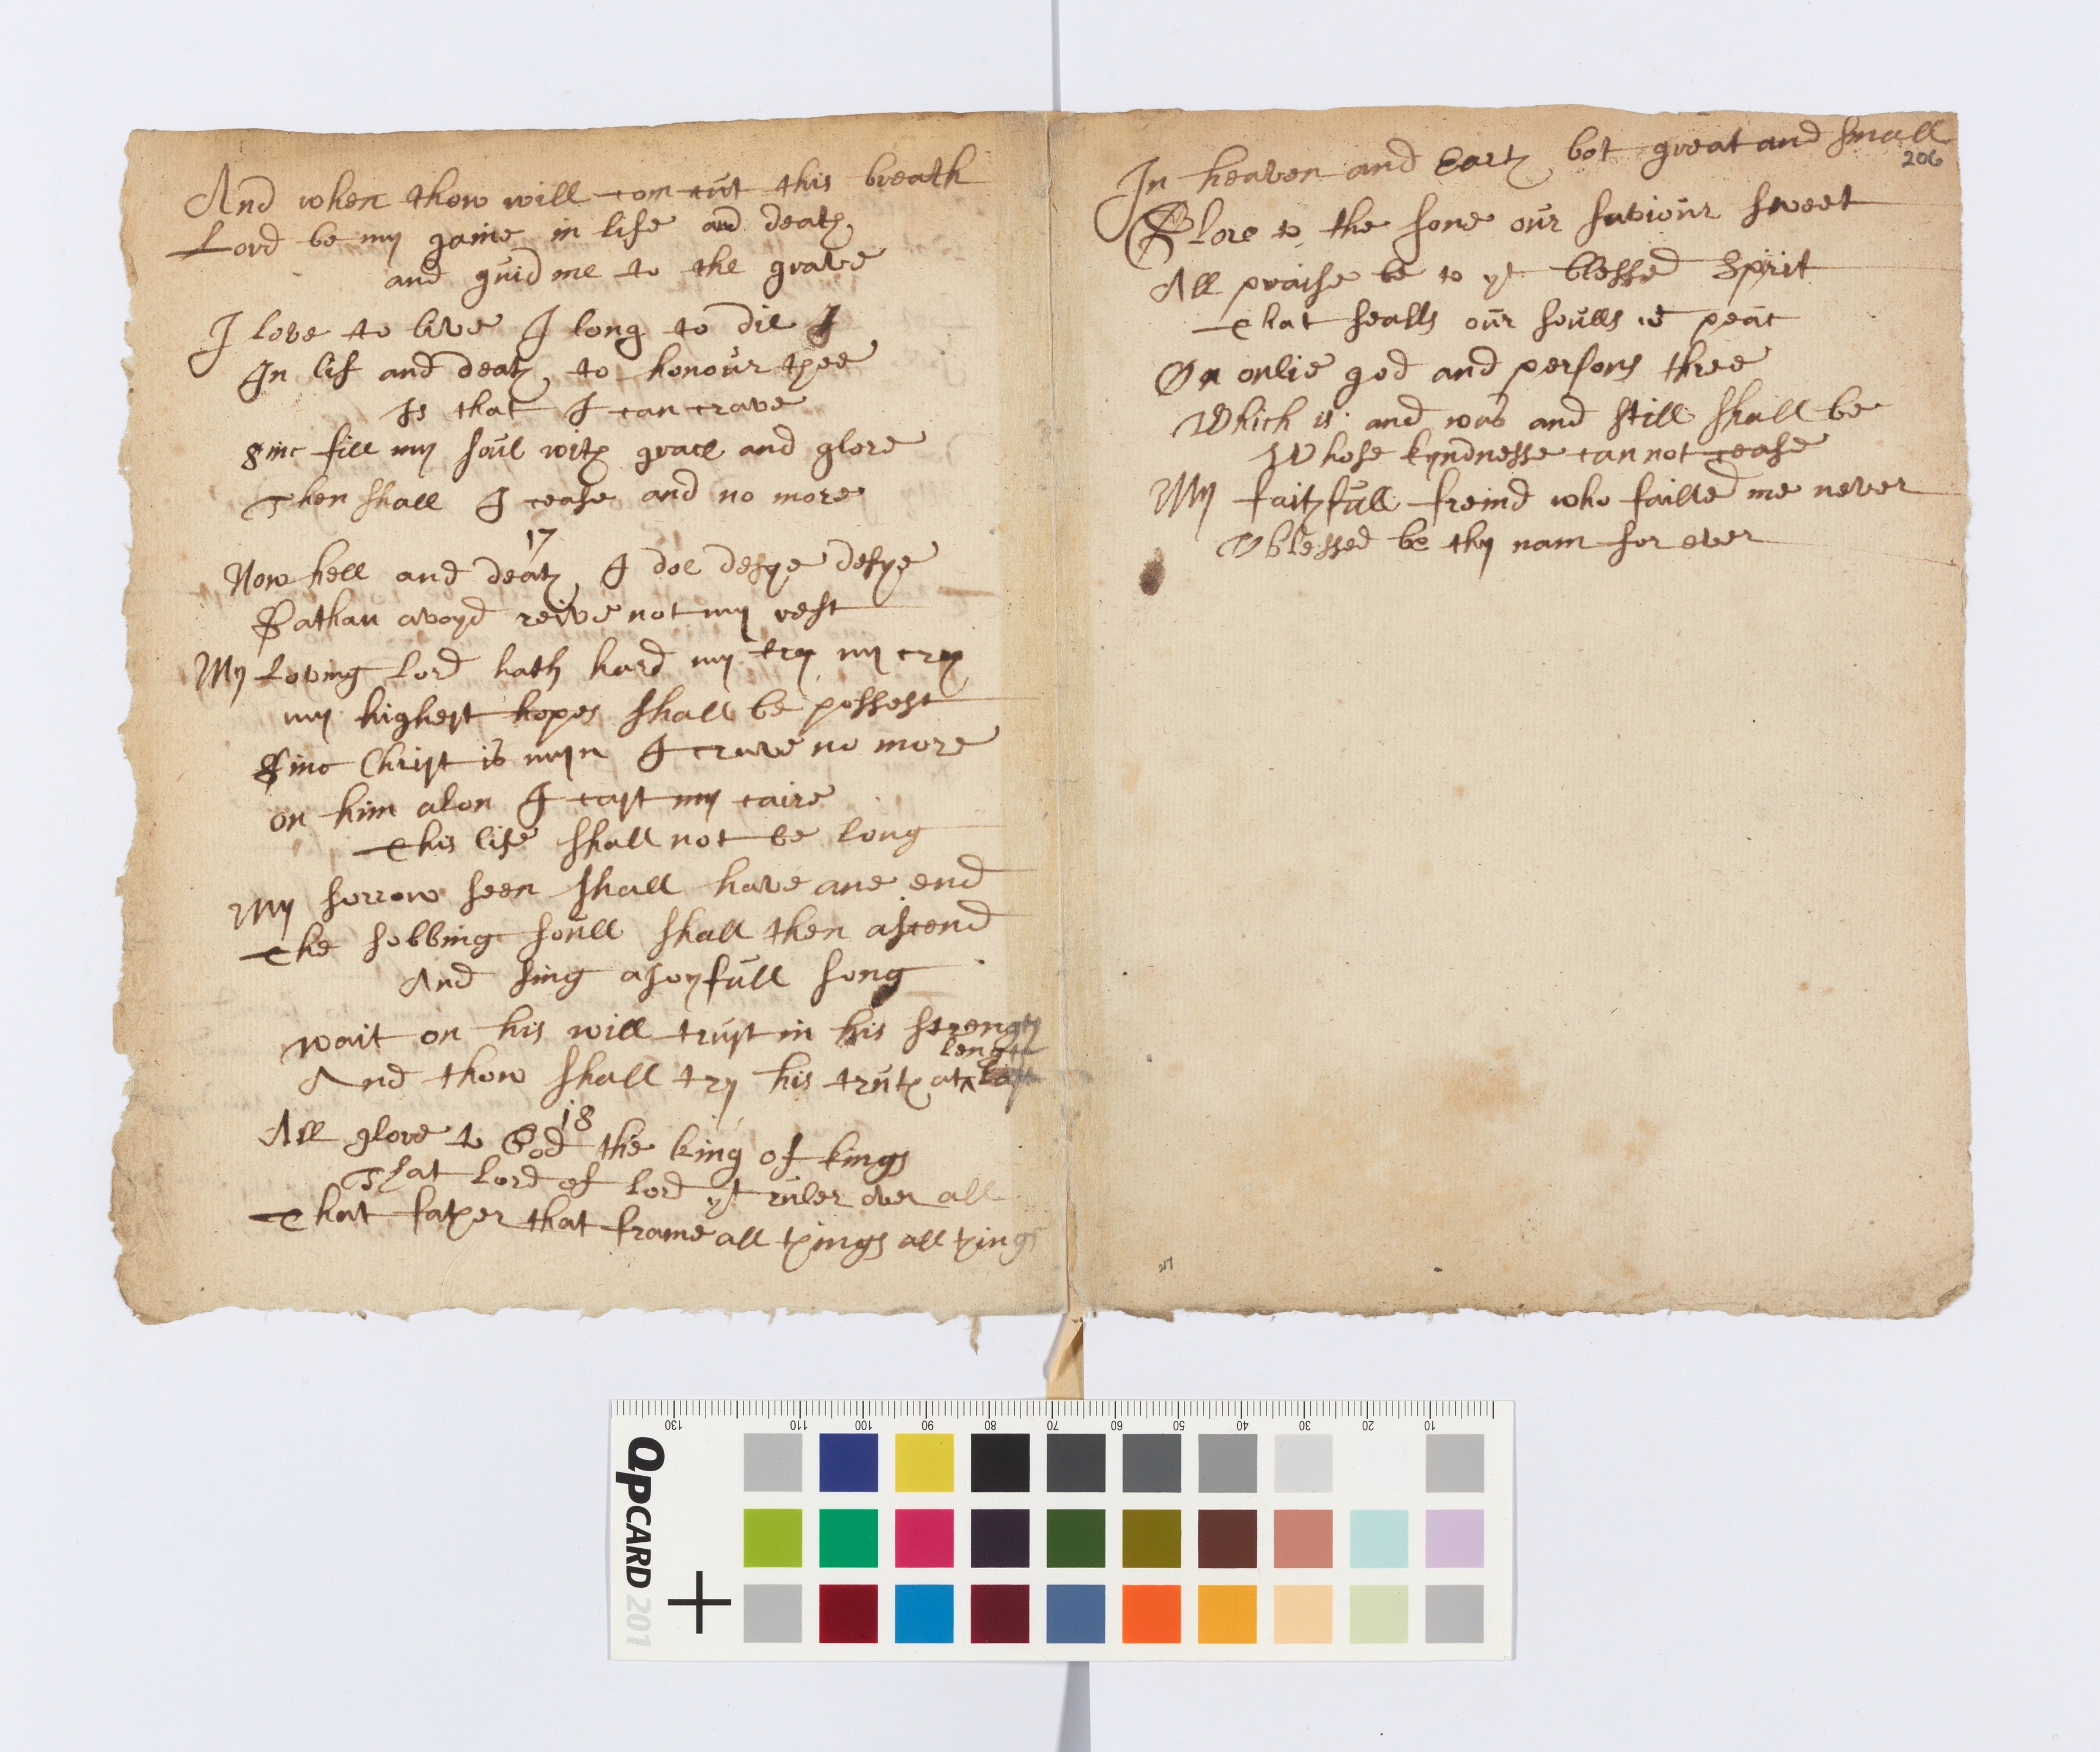 And when thow will com cut this breath
Lord be my gaine in life and death
and guid me to the grave
I love to live I long to die I
In lif and death to honour thee
Is that I can crave
Sinc fill my soul with grace and glore
Then shall I cease and no more
17
Now hell and death I doe defye defye
Sathan avoyd reive not my rest
My Loving Lord hath hard my cry my cry
my highest hopes shall be possest
Sinc Christ is myn I crave no more
on him alon I cast my caire
This life shall not be long
My sorrow seen shall have ane end
The sobbing soull shall then ascend
And sing a joyfull song
wait on his will trust in his strength
length
And thow shall try his truth at ^ last
18
All glore to God the king of kings
That Lord of Lord yt ruler over all
That father that frame all things all things
In heaven and Earth bot great and small
206
Glore to the sone our saviour sweet
All praise be to yt blessed Sprit
That sealls our soulls peac
On onlie god and persons three
Which is and was and still shall be
Whose kyndnesse can not cease
My faithfull freind who failled me never
O blessed be thy nam for ever
130 110 100 90 80 70 60 50 40 30 20 10
QPCARD 201